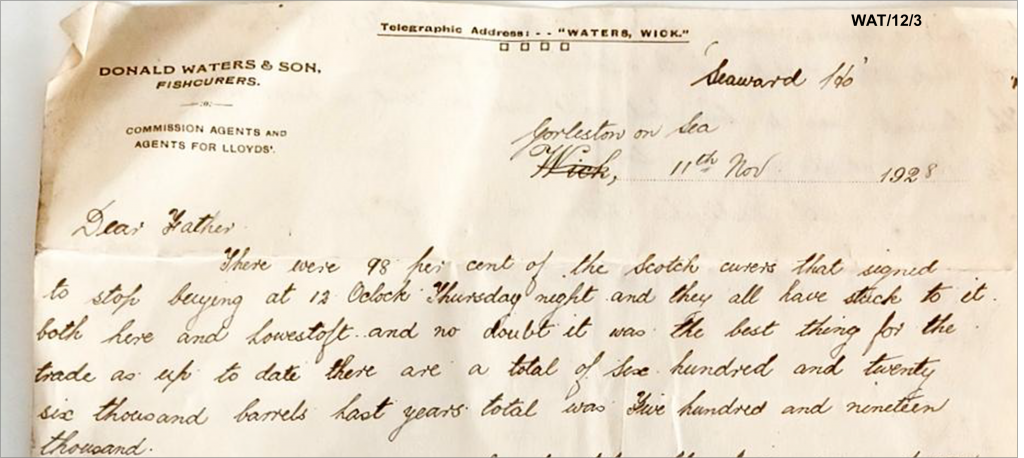 WAT/12/3
Telegraphic Address: - - "WATERS, WICK."
DONALD WATERS & SON,
FISHCURERS.
COMMISSION AGENTS AND
AGENTS FOR LLOYDS'.
Seaward
Gorleston on Sea
Wick, 11th Nov 1928
Dear Father
There were 98 per cent of the Scotch curers that signed
to stop buying at 12 Oclock Thursday night and they all have stuck to it.
both here and Lowestoft and no doubt it was the best thing for the
trade as up to date there are a total of six hundred and twenty
six thousand barrels last years total was Five hundred and nineteen
thousand.